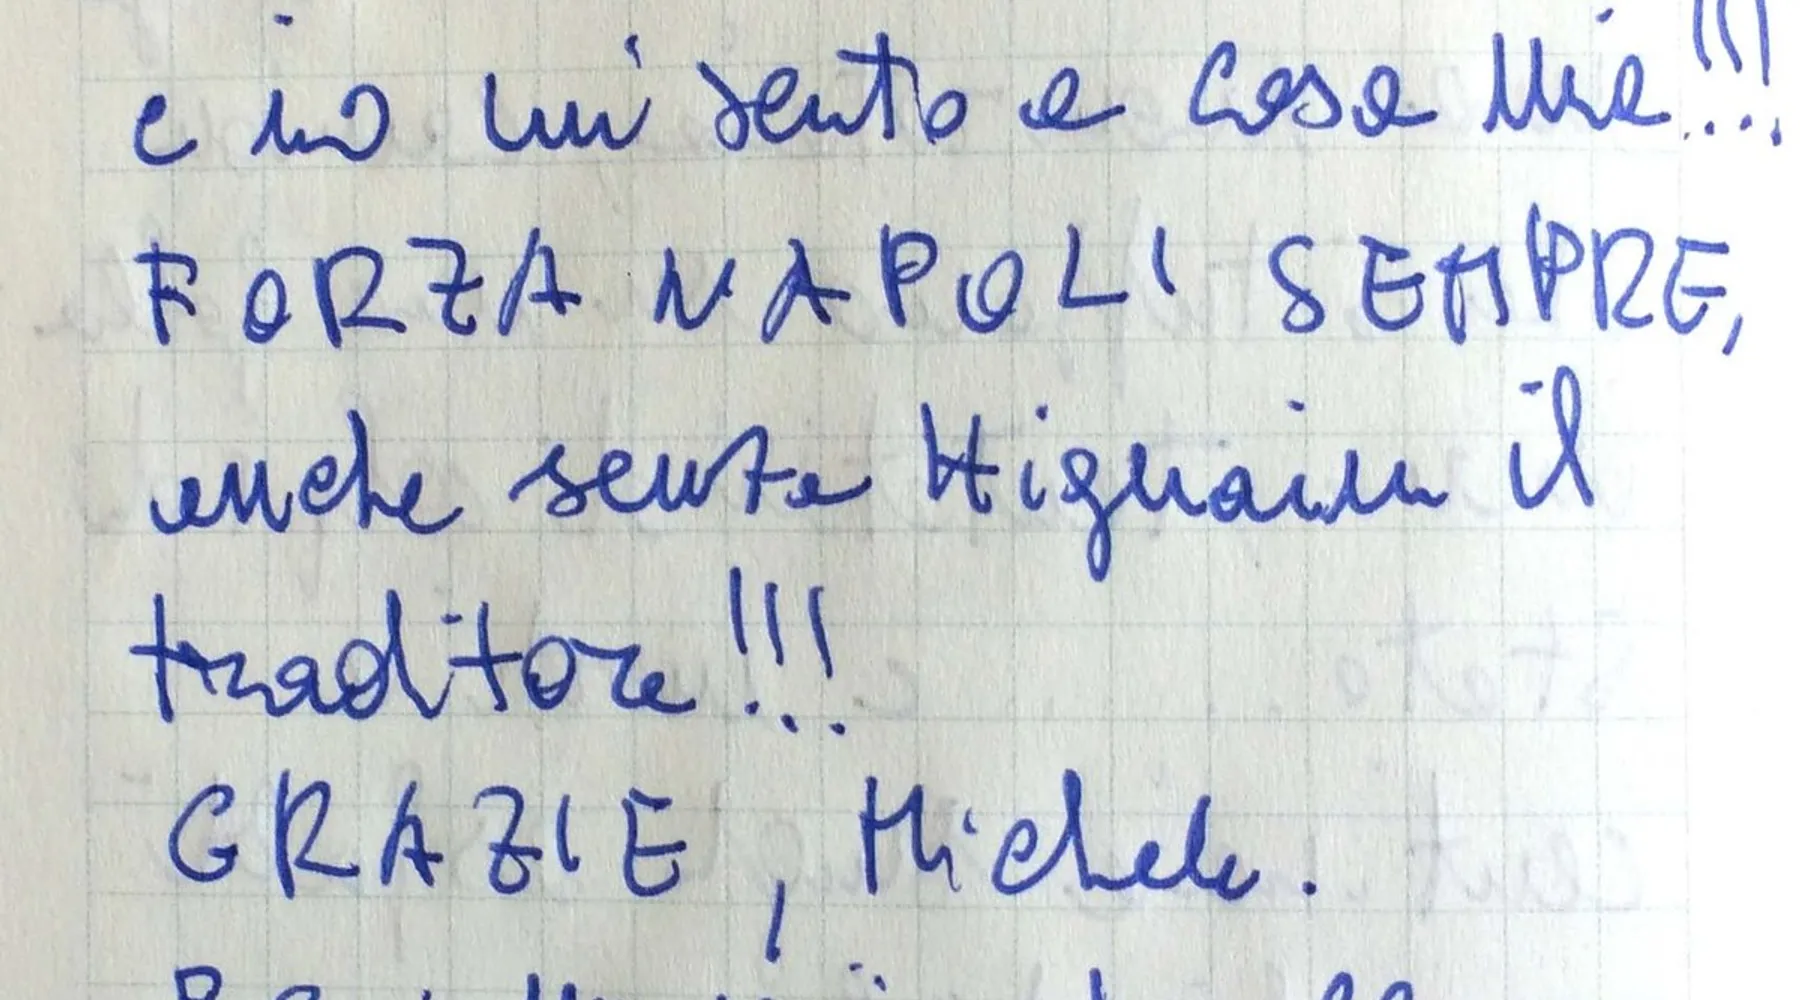 e io mi sento a casa mia!!!
FORZA NAPOLI SEMPRE,
anche senza Higuain il
traditore!!!
GRAZIE, Michele.